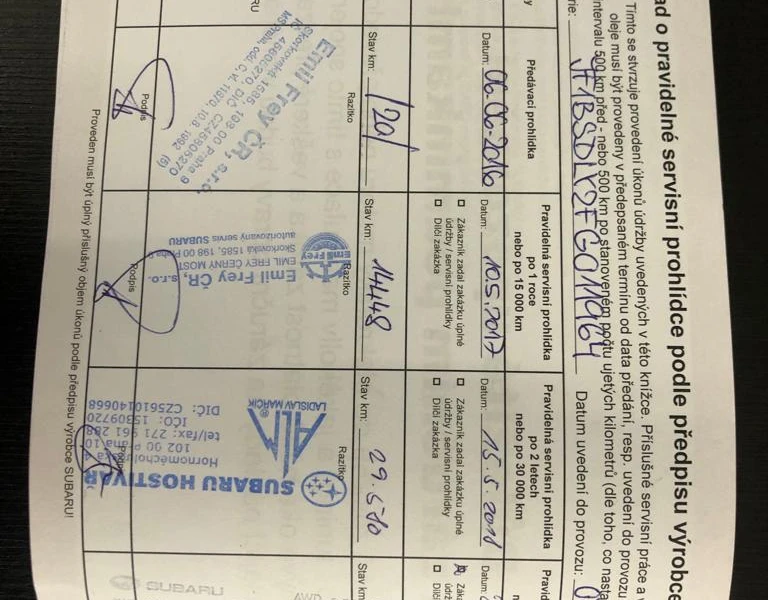 ad o pravidelné servisní prohlídce podle předpisu výrobce
Tímto se stvrzuje provedení úkonů údržby uvedených v této knížce. Příslušné servisní práce a
oleje musí být provedeny v předepsaném termínu od data předání, resp. uvedení do provozu
intervalu 500 km před - nebo 500 km po stanoveném počtu ujetých kilometrů (dle toho, co nasta
rie: Datum uvedení do provozu:
Předávací prohlídka
Datum: 06.06.2016
Stav km: /20/
Razítko
Emil Frey ČR, s.r.o.
Skorkovská 1585, 198 00 Praha 9
Podpis
Pravidelná servisní prohlídka
po 1 roce
nebo po 15 000 km
Datum: 10.5.2017
Zákazník zadal zakázku úplné
údržby / servisní prohlídky
Dílčí zakázka
Stav km: 14448
Razítko
Emil Frey
Emil Frey ČR, s.r.o.
EMIL FREY ČERNÝ MOST
Skorkovská 1585, 198 00 Praha 9
autorizovaný servis SUBARU
Podpis
Pravidelná servisní prohlídka
po 2 letech
nebo po 30 000 km
Datum: 15.5.2018
Zákazník zadal zakázku úplné
údržby / servisní prohlídky
Dílčí zakázka
Stav km: 29.570
Razítko
SUBARU HOSTIVAŘ
LADISLAV MAŘČÍK
Hornoměcholupská
102 00 Praha 10
tel/fax: 271 961 298
IČO: 15309720
DIČ: CZ5610140668
Pravid
Datum:
Záka
Dílčí
Stav km:
SUBARU
AWD
Proveden musí být úplný příslušný objem úkonů podle předpisu výrobce SUBARU!